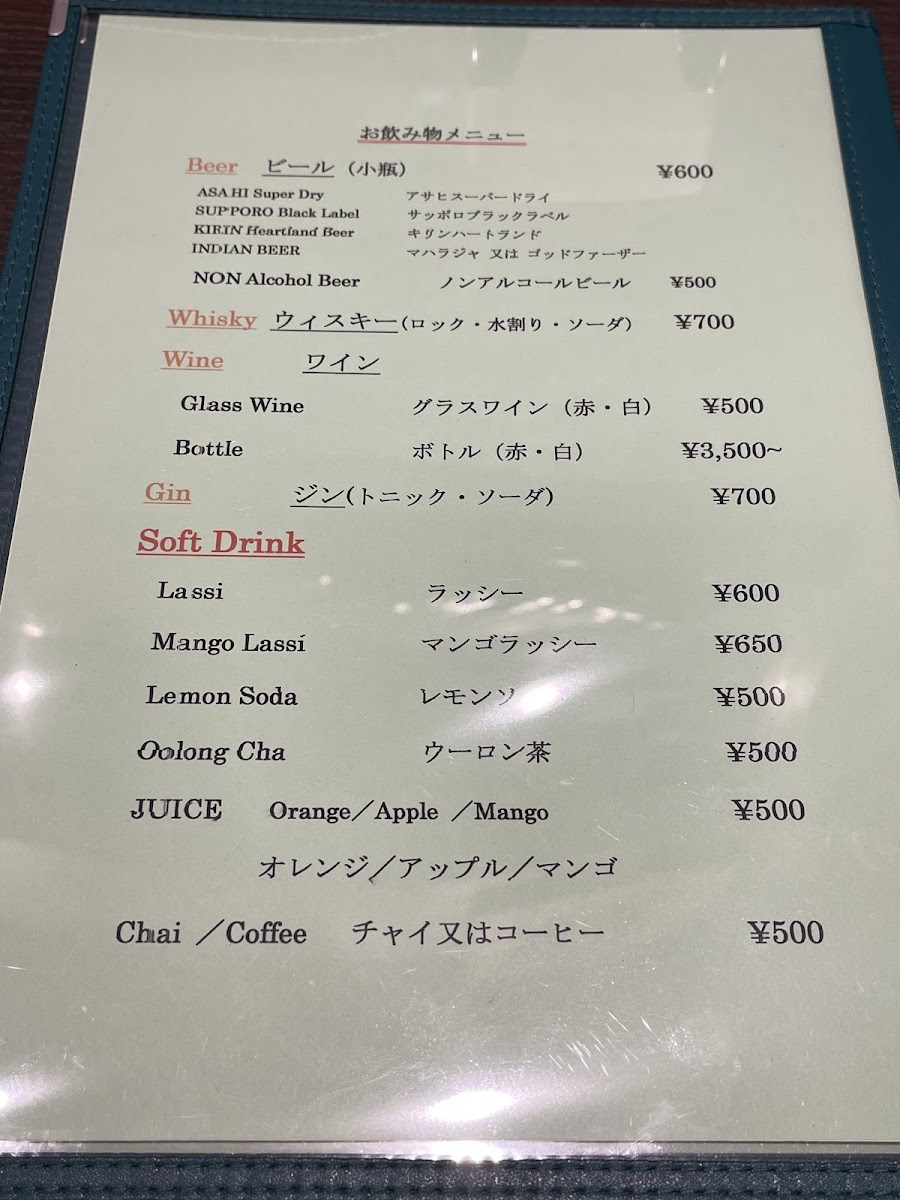 お飲み物メニュー
Beer ビール（小瓶） ¥600
ASAHI Super Dry アサヒスーパードライ
SUPPORO Black Label サッポロブラックラベル
KIRIN Heartland Beer キリンハートランド
INDIAN BEER マハラジャ 又は ゴッドファーザー
NON Alcohol Beer ノンアルコールビール ¥500
Whisky ウィスキー(ロック・水割り・ソーダ） ¥700
Wine ワイン
Glass Wine グラスワイン（赤・白） ¥500
Bottle ボトル（赤・白） ¥3,500~
Gin ジン(トニック・ソーダ） ¥700
Soft Drink
Lassi ラッシー ¥600
Mango Lassi マンゴラッシー ¥650
Lemon Soda レモンソ ¥500
Oolong Cha ウーロン茶 ¥500
JUICE Orange／Apple ／Mango ¥500
オレンジ／アップル／マンゴ
Chai ／Coffee チャイ又はコーヒー ¥500